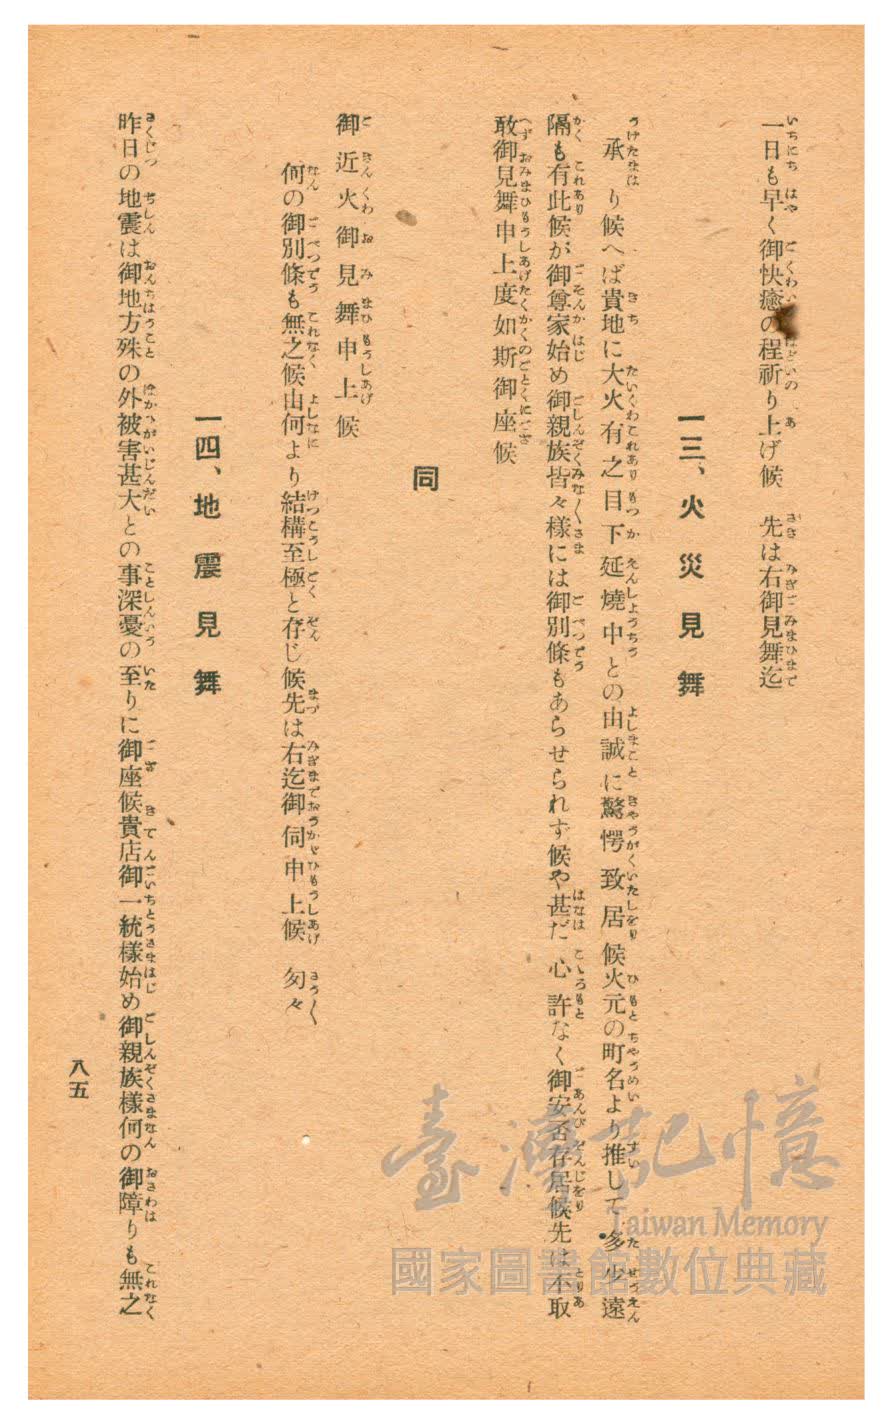 一日も早く御快癒の程祈り上げ候　先は右御見舞迄
一三、火災見舞
承り候へば貴地に大火有之目下延燒中との由誠に驚愕致居候火元の町名より推して多少遠
隔も有此候が御尊家始め御親族皆々樣には御別條もあらせられず候や甚だ心許なく御安否存居候先は不取
敢御見舞申上度如斯御座候
同
御近火御見舞申上候
何の御別條も無之候由何より結構至極と存じ候先は右迄御伺申上候　匆々
一四、地震見舞
昨日の地震は御地方殊の外被害甚大との事深憂の至りに御座候貴店御一統樣始め御親族樣何の御障りも無之
八五
臺灣記憶
Taiwan Memory
國家圖書館數位典藏